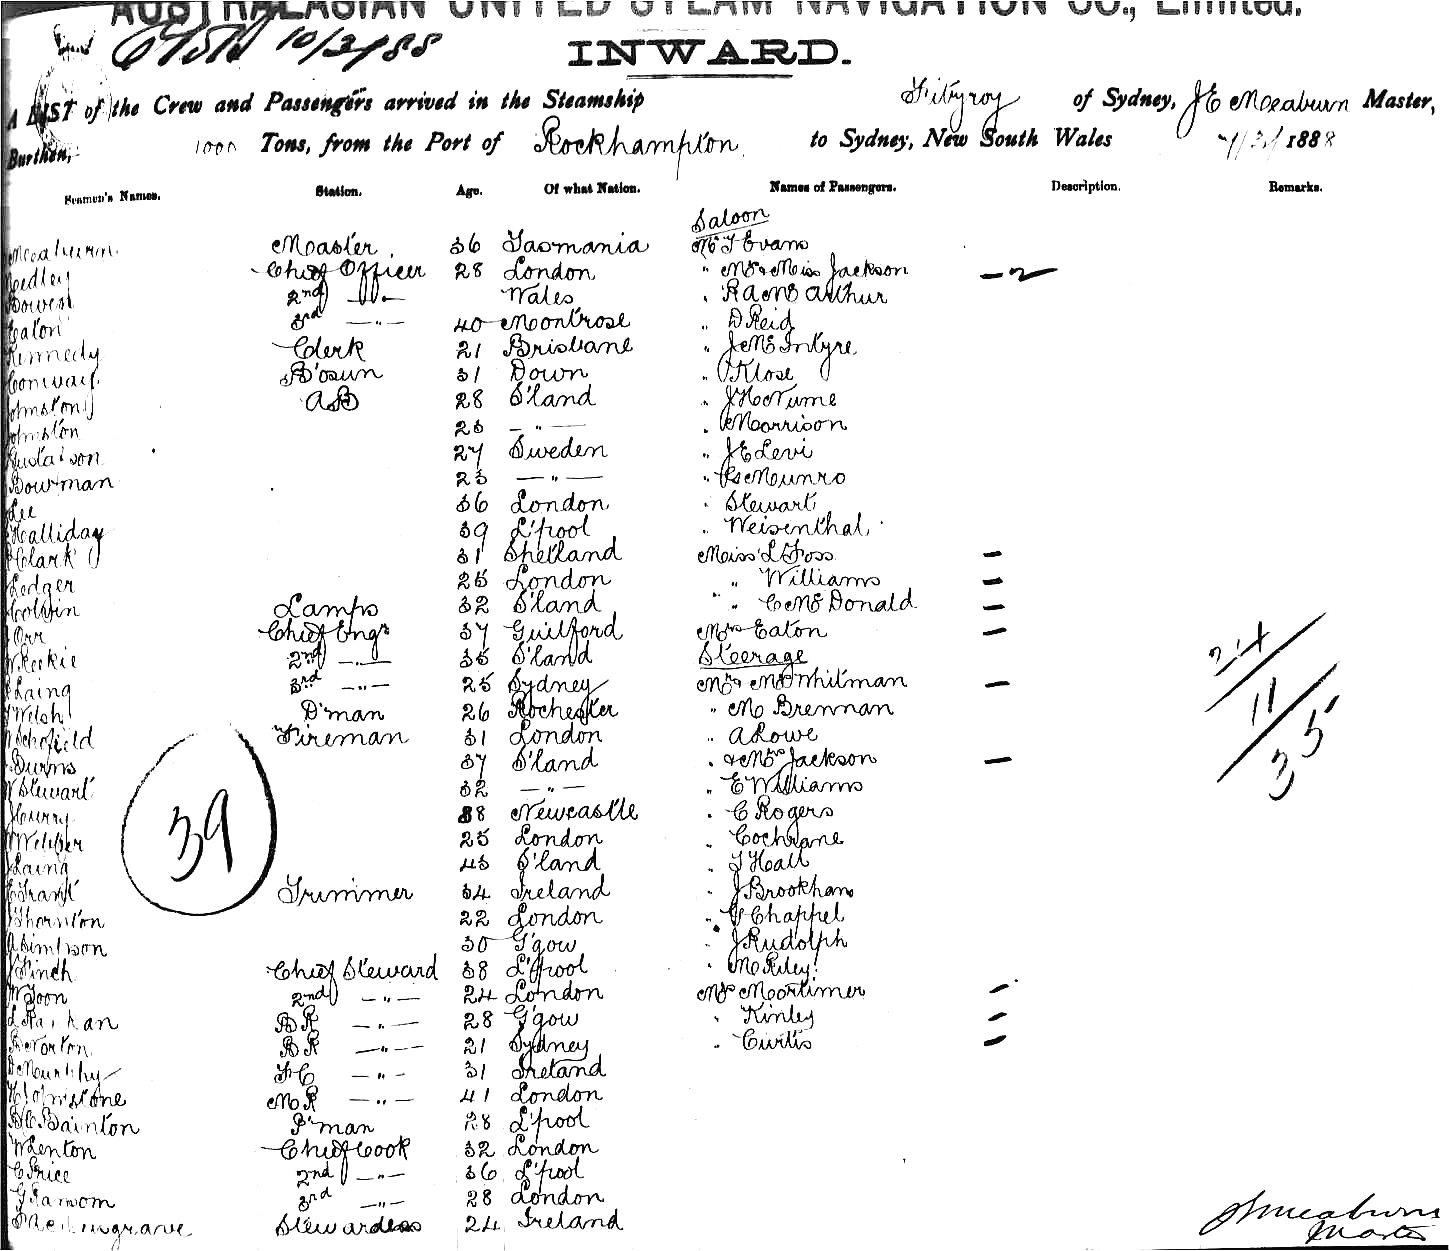 AUSTRALASIAN UNITED STEAM NAVIGATION CO., Limited.
10/3/88 INWARD.
A LIST of the Crew and Passengers arrived in the Steamship Fitzroy of Sydney, J E Meaburn Master,
Burthen, 1000 Tons, from the Port of Rockhampton to Sydney, New South Wales 7/3/1888
Seamen's Names. Station. Age. Of what Nation. Names of Passengers. Description. Remarks.
Saloon
Meaburn Master 36 Tasmania Mr T Evans
Chief Officer 28 London " Mr & Miss Jackson — 2
Bowen 2nd —"— Wales " R A McArthur
Eaton 3rd —"— 40 Montrose " D Reid
Kennedy Clerk 21 Brisbane " J McIntyre
Conway B'osun 31 Down " Klose
Johnston AB 28 S'land " J H Nume
Johnston 25 —"— " Morrison
Gustafson 27 Sweden " J E Levi
Bowman 23 —"— " Munro
Lee 36 London " Stewart
Halliday 39 L'pool " Weisenthal
Clark 31 Shetland Miss L Foss —
Ledger 25 London " Williams —
Colvin Lamps 32 S'land " C McDonald —
Orr Chief Engr 37 Guilford Mrs Eaton —
W Reekie 2nd —"— 35 S'land Steerage
Laing 3rd —"— 25 Sydney Mr & Mrs Whitman —
Welsh D'man 26 Rochester " M Brennan
Schofield Fireman 31 London " A Rowe
Burns 37 S'land " & Mrs Jackson —
Stewart 32 —"— " E Williams
Curry 38 Newcastle " C Rogers
Webber 25 London " Cochrane
Laing 43 S'land " T Hall
Frank Trimmer 34 Ireland " J Brookhan
Thornton 22 London " G Chappel
A Simpson 30 G'gow " J Rudolph
J Finch Chief Steward 38 L'pool " M Riley
W Toon 2nd —"— 24 London Mr Mortimer —
BR —"— 28 G'gow " Kinley —
Norton BR —"— 21 Sydney " Curtis —
Murphy FC —"— 31 Ireland
H Johnstone MR —"— 41 London
H C Bainton P'man 28 L'pool
W Lenton Chief Cook 32 London
C Price 2nd —"— 36 L'pool
G Ransom 3rd —"— 28 London
Stewardess 24 Ireland
39
24
11
35
J E Meaburn
Master